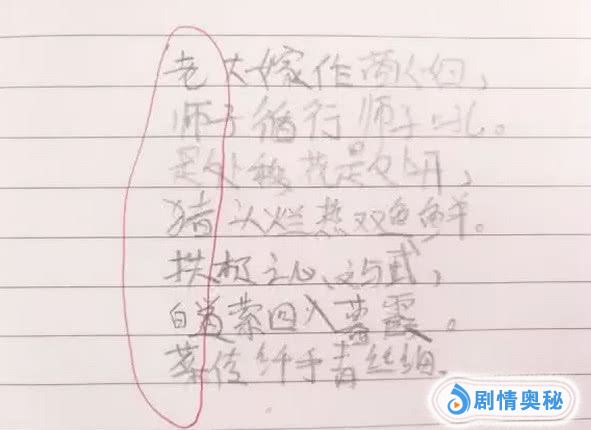 老大嫁作商人妇，
师子循行师子吼。
是处移花是处开，
猪头烂热双鱼鲜。
拱极之心、文与武，
白道萦回入暮霞。
菜传纤手青丝细。
剧情奥秘